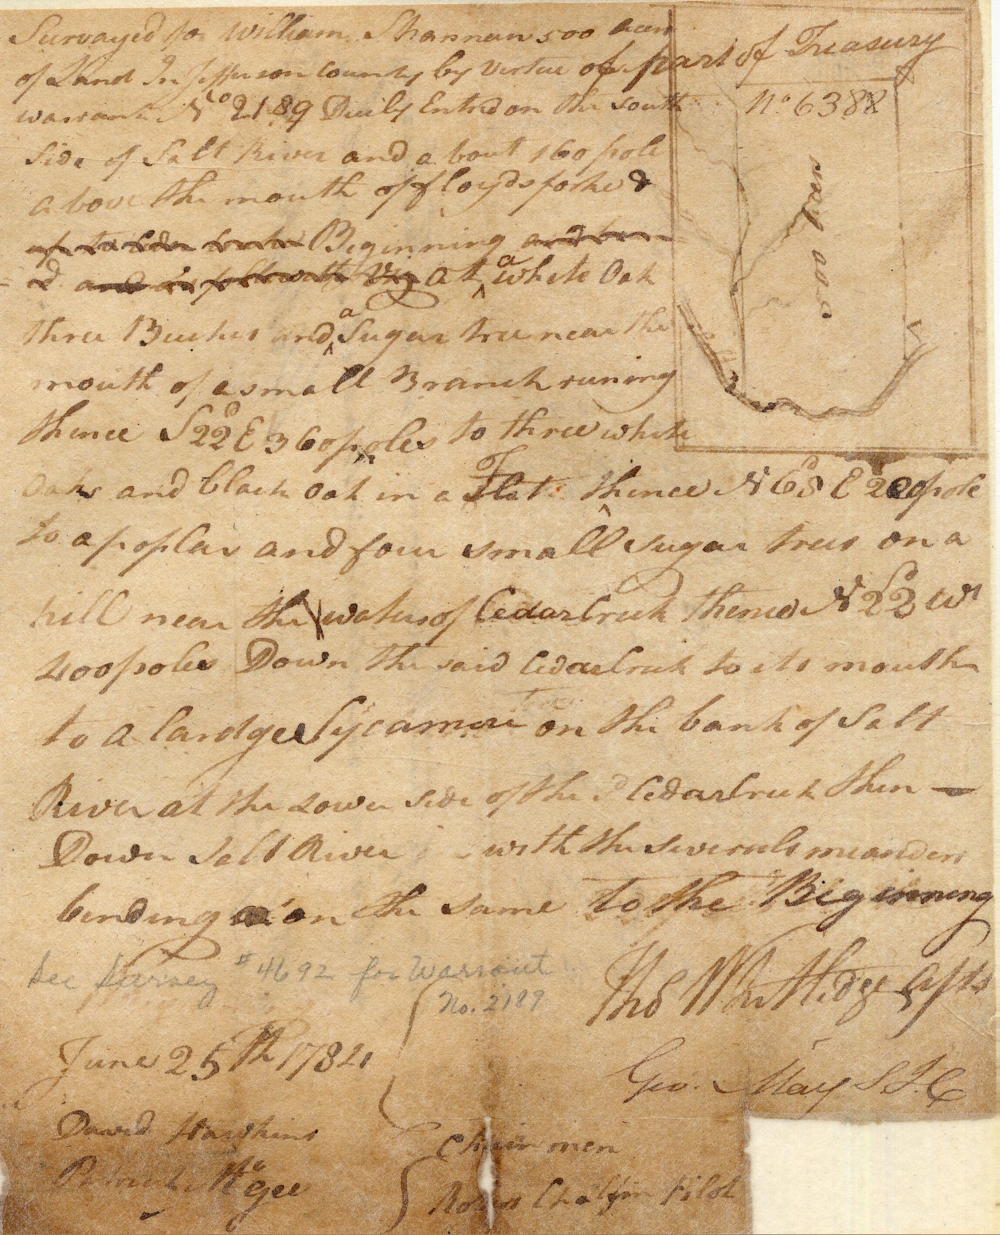 Surveyed for William Shannan 500 acres
of Land In Jefferson County by virtue of part of Treasury
warrant No 2189 Duely Entred on the south
side of Salt River and a bout 160 pole
a bove the mouth of floyds forke &
Beginning
at a white Oak
three Buches and a Sugar tree near the
mouth of a small Branch runing
thence S 22d E 360 poles to three white
Oaks and black oak in a Flat thence N 68d E 200 pole
to a poplar and four small sugar trees on a
hill near the waters of Cedar Creek thence N 22d Wt
400 poles Down the said Cedar Creek to its mouth
to a lardge Sycamore on the bank of Salt
River at the Lower side of the sd Cedar Creek then
Down Salt River with the severals meanders
binding on the same to the Beginning
See Survey #4692 for Warrant
No. 2189
Thos Whitledge Asts
June 25th 1784
Geo. May S J C
David Hawkins
Patrick McGee
Chainmen
Robert Pilot
No 6388
500 acres